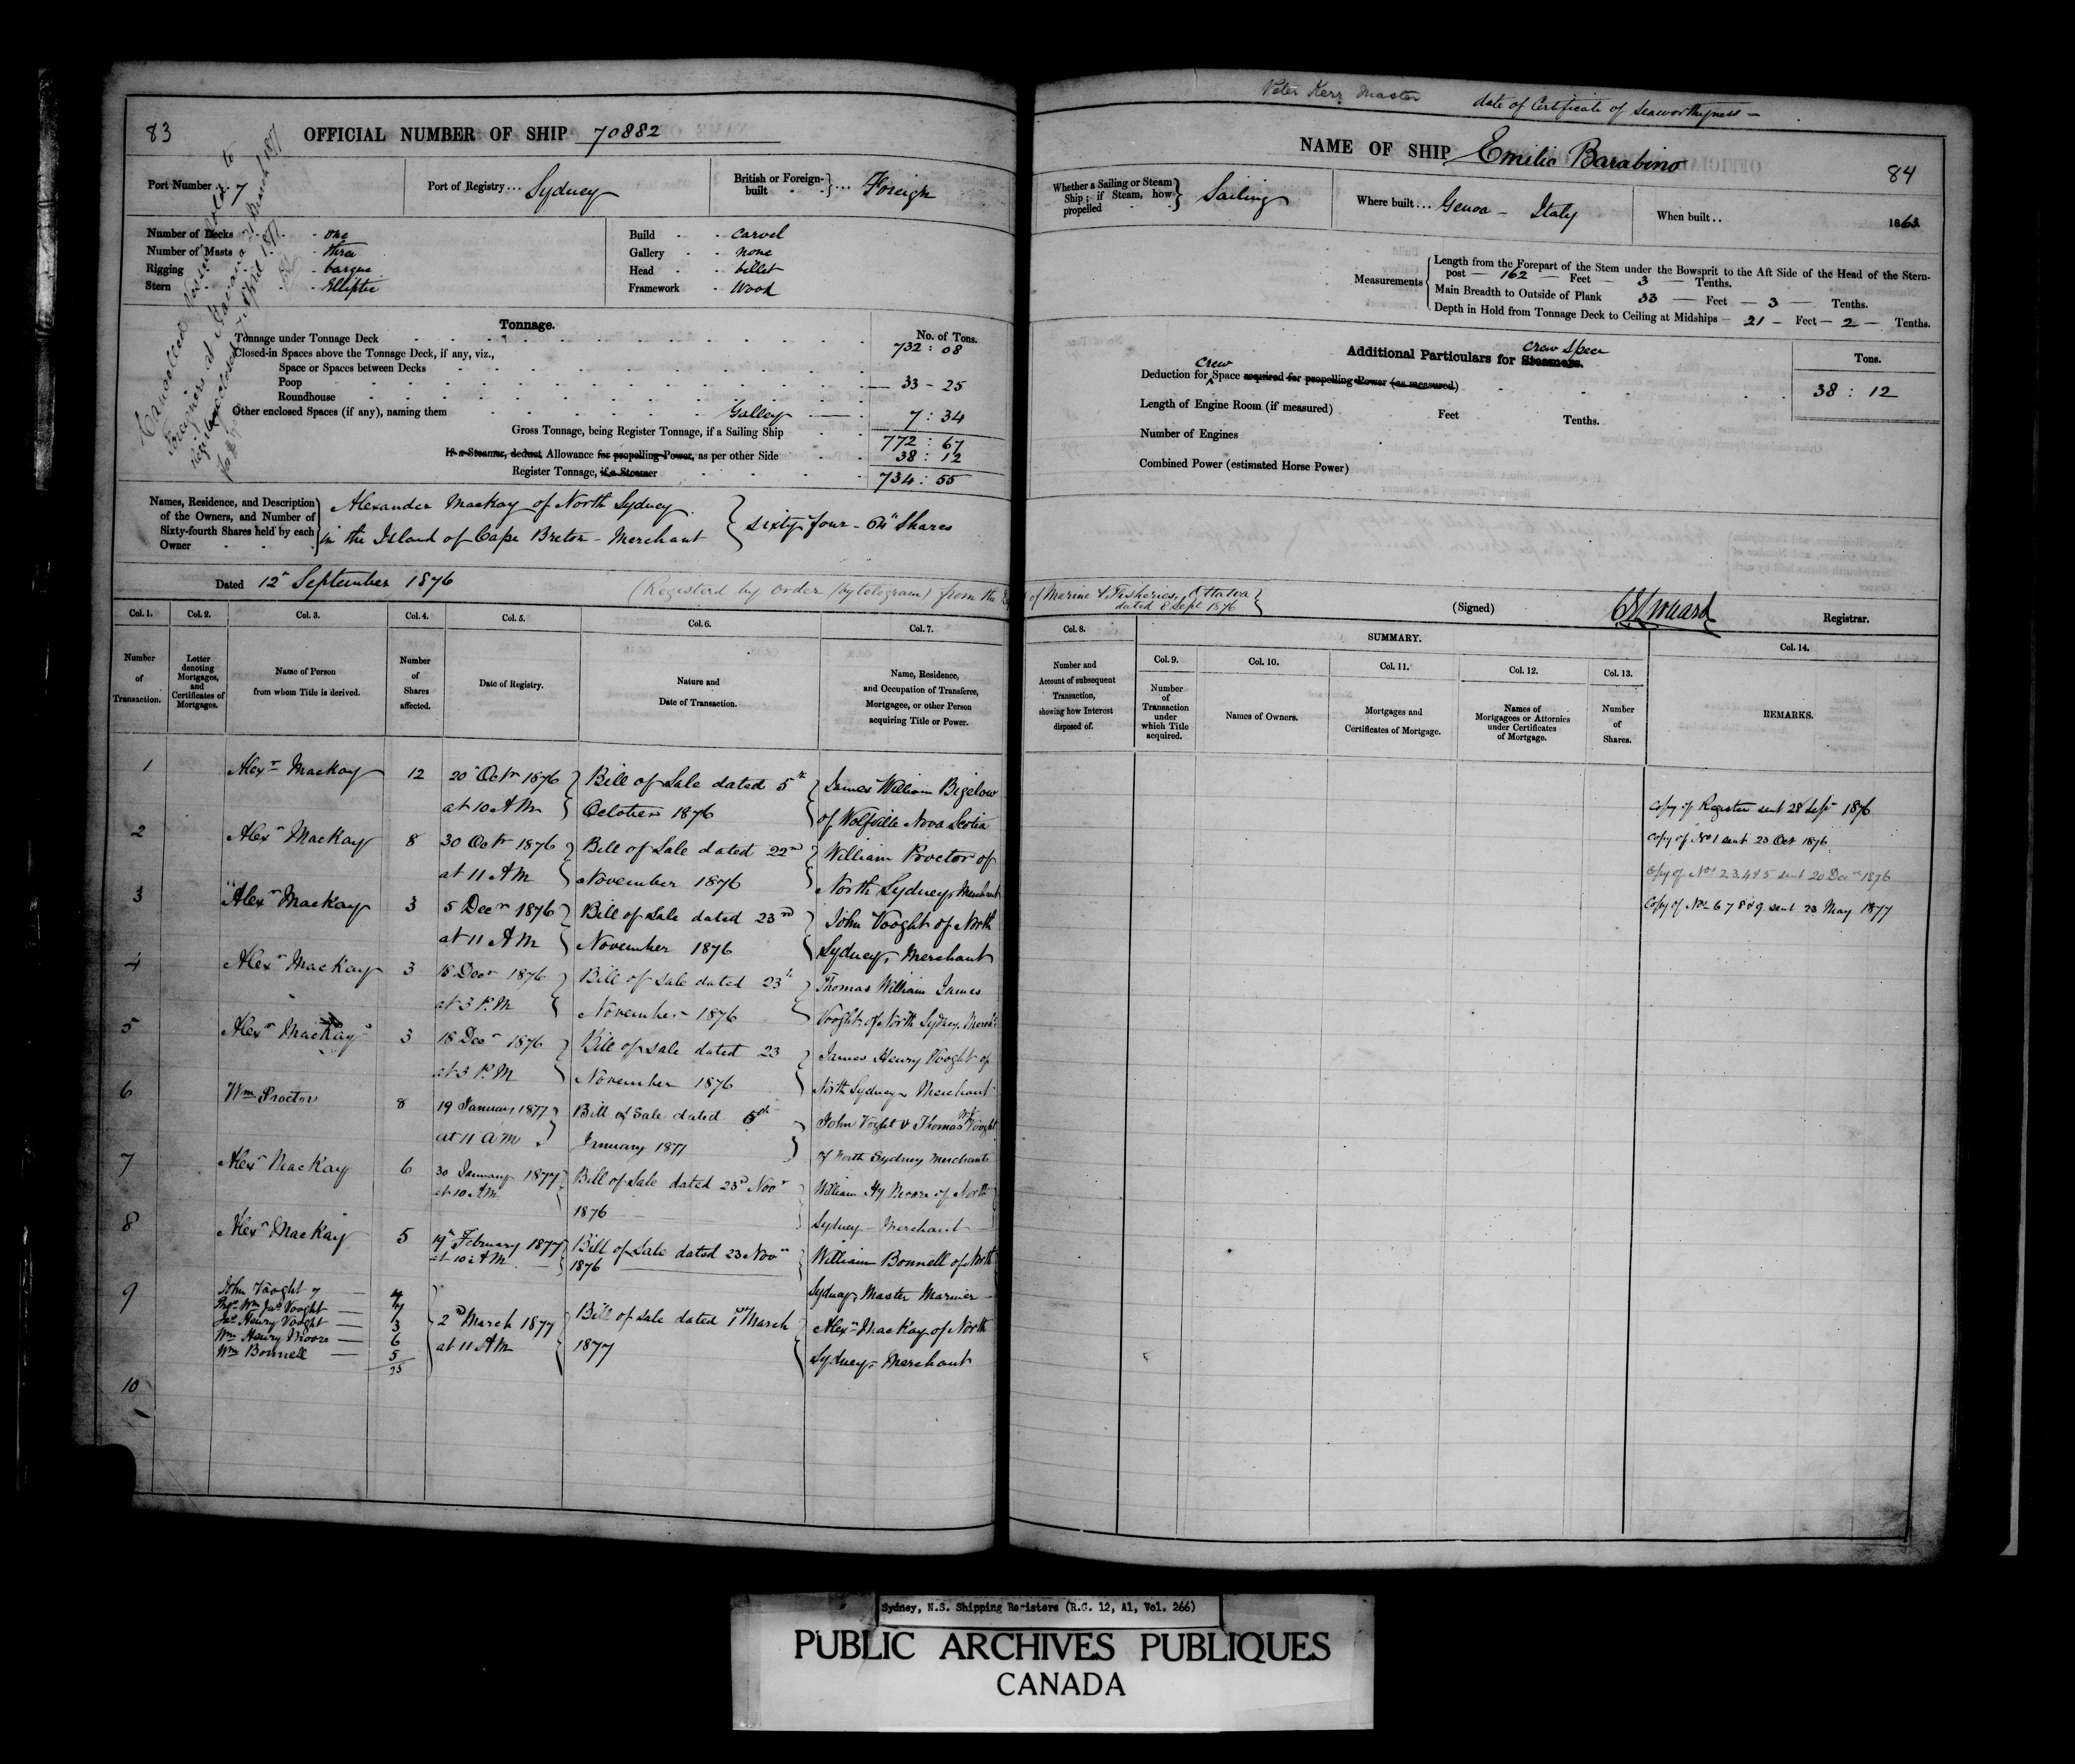 83
OFFICIAL NUMBER OF SHIP 70882
Port Number... 7
Port of Registry... Sydney
British or Foreign-built ... Foreign
Number of Decks - one
Number of Masts - three
Rigging - barque
Stern - Elliptic
Build - Carvel
Gallery - none
Head - billet
Framework - Wood
Cancelled Vessel sold to
Foreigners at Havana 21 March 1877
Register closed 7 April 1877
Tonnage.
No. of Tons.
Tonnage under Tonnage Deck 732 : 08
Closed-in Spaces above the Tonnage Deck, if any, viz.,
Space or Spaces between Decks
Poop 33 - 25
Roundhouse
Other enclosed Spaces (if any), naming them Galley 7 : 34
Gross Tonnage, being Register Tonnage, if a Sailing Ship 772 : 67
If a Steamer, deduct Allowance for propelling Power, as per other Side 38 : 12
Register Tonnage, if a Steamer 734 : 55
Names, Residence, and Description of the Owners, and Number of Sixty-fourth Shares held by each Owner
Alexander Mackay of North Sydney
in the Island of Cape Breton - Merchant
sixty four - 64" Shares
Dated 12" September 1876
(Registerd by order (by telegram) from the
Col. 1. Col. 2. Col. 3. Col. 4. Col. 5. Col. 6. Col. 7.
Number of Transaction.
Letter denoting Mortgages, and Certificates of Mortgages.
Name of Person from whom Title is derived.
Number of Shares affected.
Date of Registry.
Nature and Date of Transaction.
Name, Residence, and Occupation of Transferee, Mortgagee, or other Person acquiring Title or Power.
1 Alexr MacKay 12 20" Octr 1876 Bill of Sale dated 5th James William Bigelow
at 10 AM October 1876 of Wolfville Nova Scotia
2 Alexr MacKay 8 30 Octr 1876 Bill of Sale dated 22nd William Proctor of
at 11 AM November 1876 North Sydney Merchant
3 Alexr MacKay 3 5 Decr 1876 Bill of Sale dated 23rd John Vooght of North
at 11 AM November 1876 Sydney, Merchant
4 Alexr MacKay 3 18 Decr 1876 Bill of Sale dated 23 Thomas William James
at 3 P.M November 1876 Vooght of North Sydney Mercht
5 Alexr MacKay 3 18 Decr 1876 Bill of Sale dated 23 James Henry Vooght of
at 3 P.M November 1876 North Sydney Merchant
6 Wm Proctor 8 19 January 1877 Bill of Sale dated 5th John Voght & Thomas Wm Vooght
at 11 a m January 1877 of North Sydney Merchants
7 Alexr MacKay 6 30 January 1877 Bill of Sale dated 23rd Novr William Hy Moore of North
at 10 AM 1876 Sydney - Merchant
8 Alexr MacKay 5 19th February 1877 Bill of Sale dated 23 Novr William Bonnell of North
at 10 AM 1876 Sydney, Master Mariner
9 John Vooght 4
Thos Wm Jas Vooght 7
Jas Henry Vooght 3
Wm Henry Moore 6
Wm Bonnell 5
25
2nd March 1877 Bill of Sale dated 1st March Alexr MacKay of North
at 11 AM 1877 Sydney, Merchant
10
Peter Kerr Master
date of Certificate of Seaworthyness -
NAME OF SHIP Emilio Barabino
84
Whether a Sailing or Steam Ship; if Steam, how propelled Sailing
Where built... Genoa - Italy
When built.. 1863
Measurements
Length from the Forepart of the Stem under the Bowsprit to the Aft Side of the Head of the Stern-
post - 162 - Feet - 3 - Tenths.
Main Breadth to Outside of Plank 33 - Feet - 3 - Tenths.
Depth in Hold from Tonnage Deck to Ceiling at Midships - 21 - Feet - 2 - Tenths.
Additional Particulars for Steamers. crew space
Tons.
Deduction for crew Space required for propelling Power (as measured) 38 : 12
Length of Engine Room (if measured) Feet Tenths.
Number of Engines
Combined Power (estimated Horse Power)
of Marine & Fisheries, Ottawa
dated 8 Sept 1876
(Signed) Registrar.
Col. 8. SUMMARY. Col. 14.
Col. 9. Col. 10. Col. 11. Col. 12. Col. 13.
Number and Account of subsequent Transaction, showing how Interest disposed of.
Number of Transaction under which Title acquired.
Names of Owners.
Mortgages and Certificates of Mortgage.
Names of Mortgagees or Attornies under Certificates of Mortgage.
Number of Shares.
REMARKS.
Copy of Register sent 28 Sepr 1876
Copy of No 1 sent 23 Oct 1876
Copy of Nos 2 3 4 & 5 sent 20 Decr 1876
Copy of Nos 6 7 8 & 9 sent 23 May 1877
Sydney, N.S. Shipping Registers (R.G. 12, A1, Vol. 266)
PUBLIC ARCHIVES PUBLIQUES
CANADA